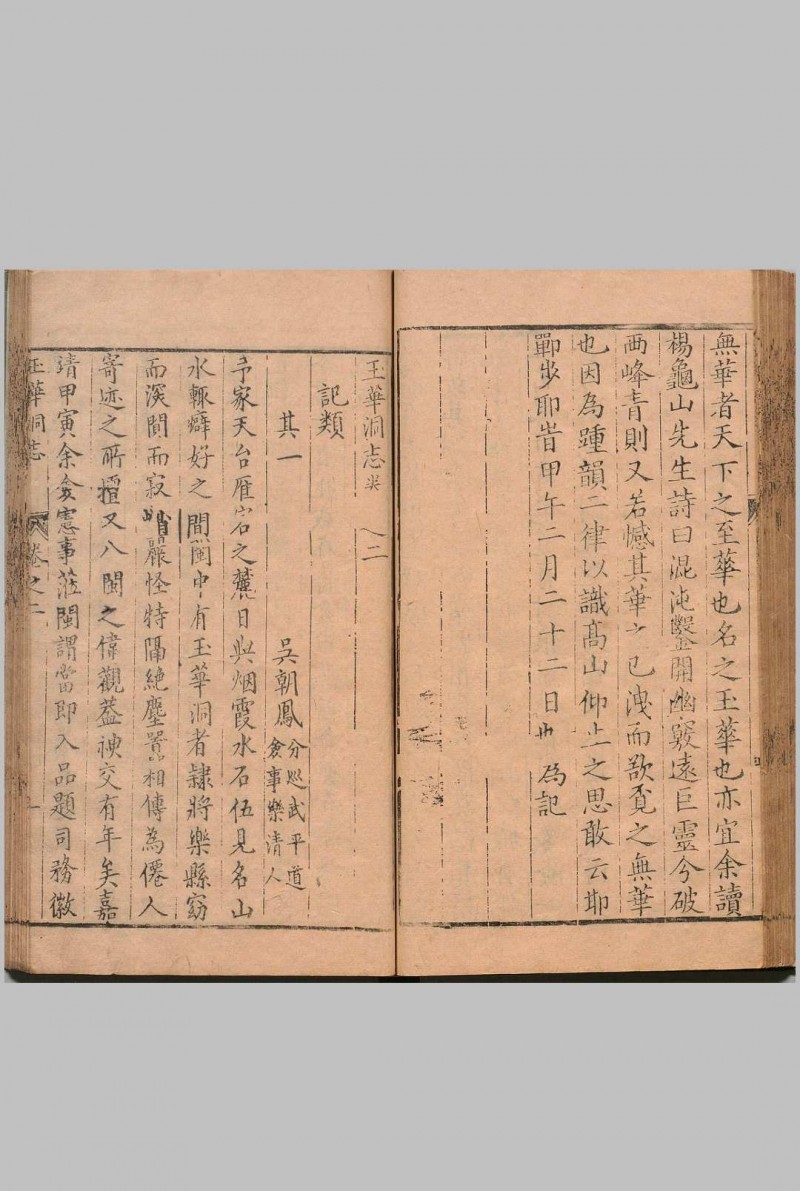 無華者天下之至華也名之玉華也亦宜余讀
楊龜山先生詩曰混沌鑿開幽竅遠巨靈今破
兩峰青則又若憾其華之已洩而欲覓之無華
也因為踵韻二律以識高山仰止之思敢云耶
鄲步耶旹甲午二月二十二日也 為記
玉華洞志 卷之二
記類
其一 吳朝鳳 分巡武平道
僉事樂清人
予家天台雁宕之麓日與烟霞水石伍見名山
水輒癖好之聞閩中有玉華洞者隸將樂縣窈
而深閒而寂 巖怪特隔絶塵囂相傳為僊人
寄迹之所擅又八閩之偉觀葢神交有年矣嘉
靖甲寅余僉憲事蒞閩謂當即入品題司務徽
玉華洞志 卷之二 一